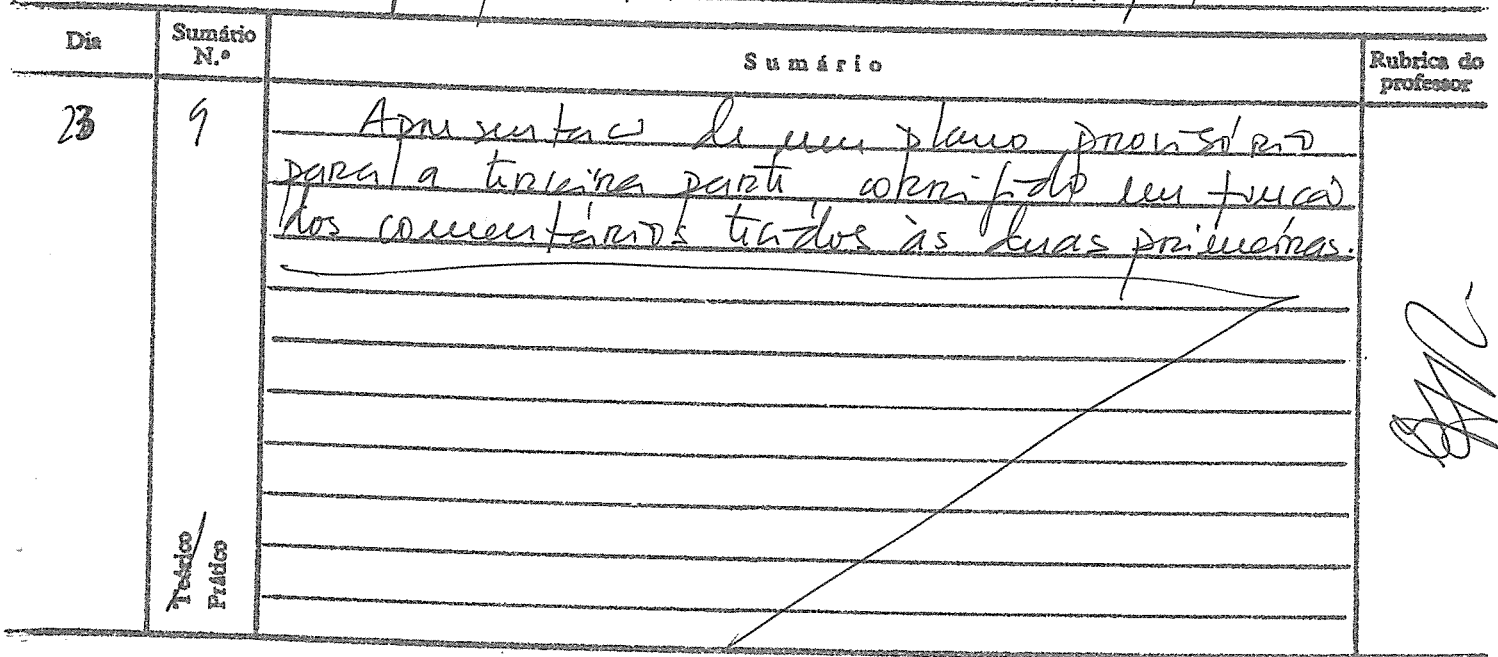 Dia
Sumário N.º
Sumário
Rubrica do professor
23
9
Apresentação de um plano provisório
para a terceira parte corrigido em função
dos comentários tecidos às duas primeiras.
Teórico
Prático